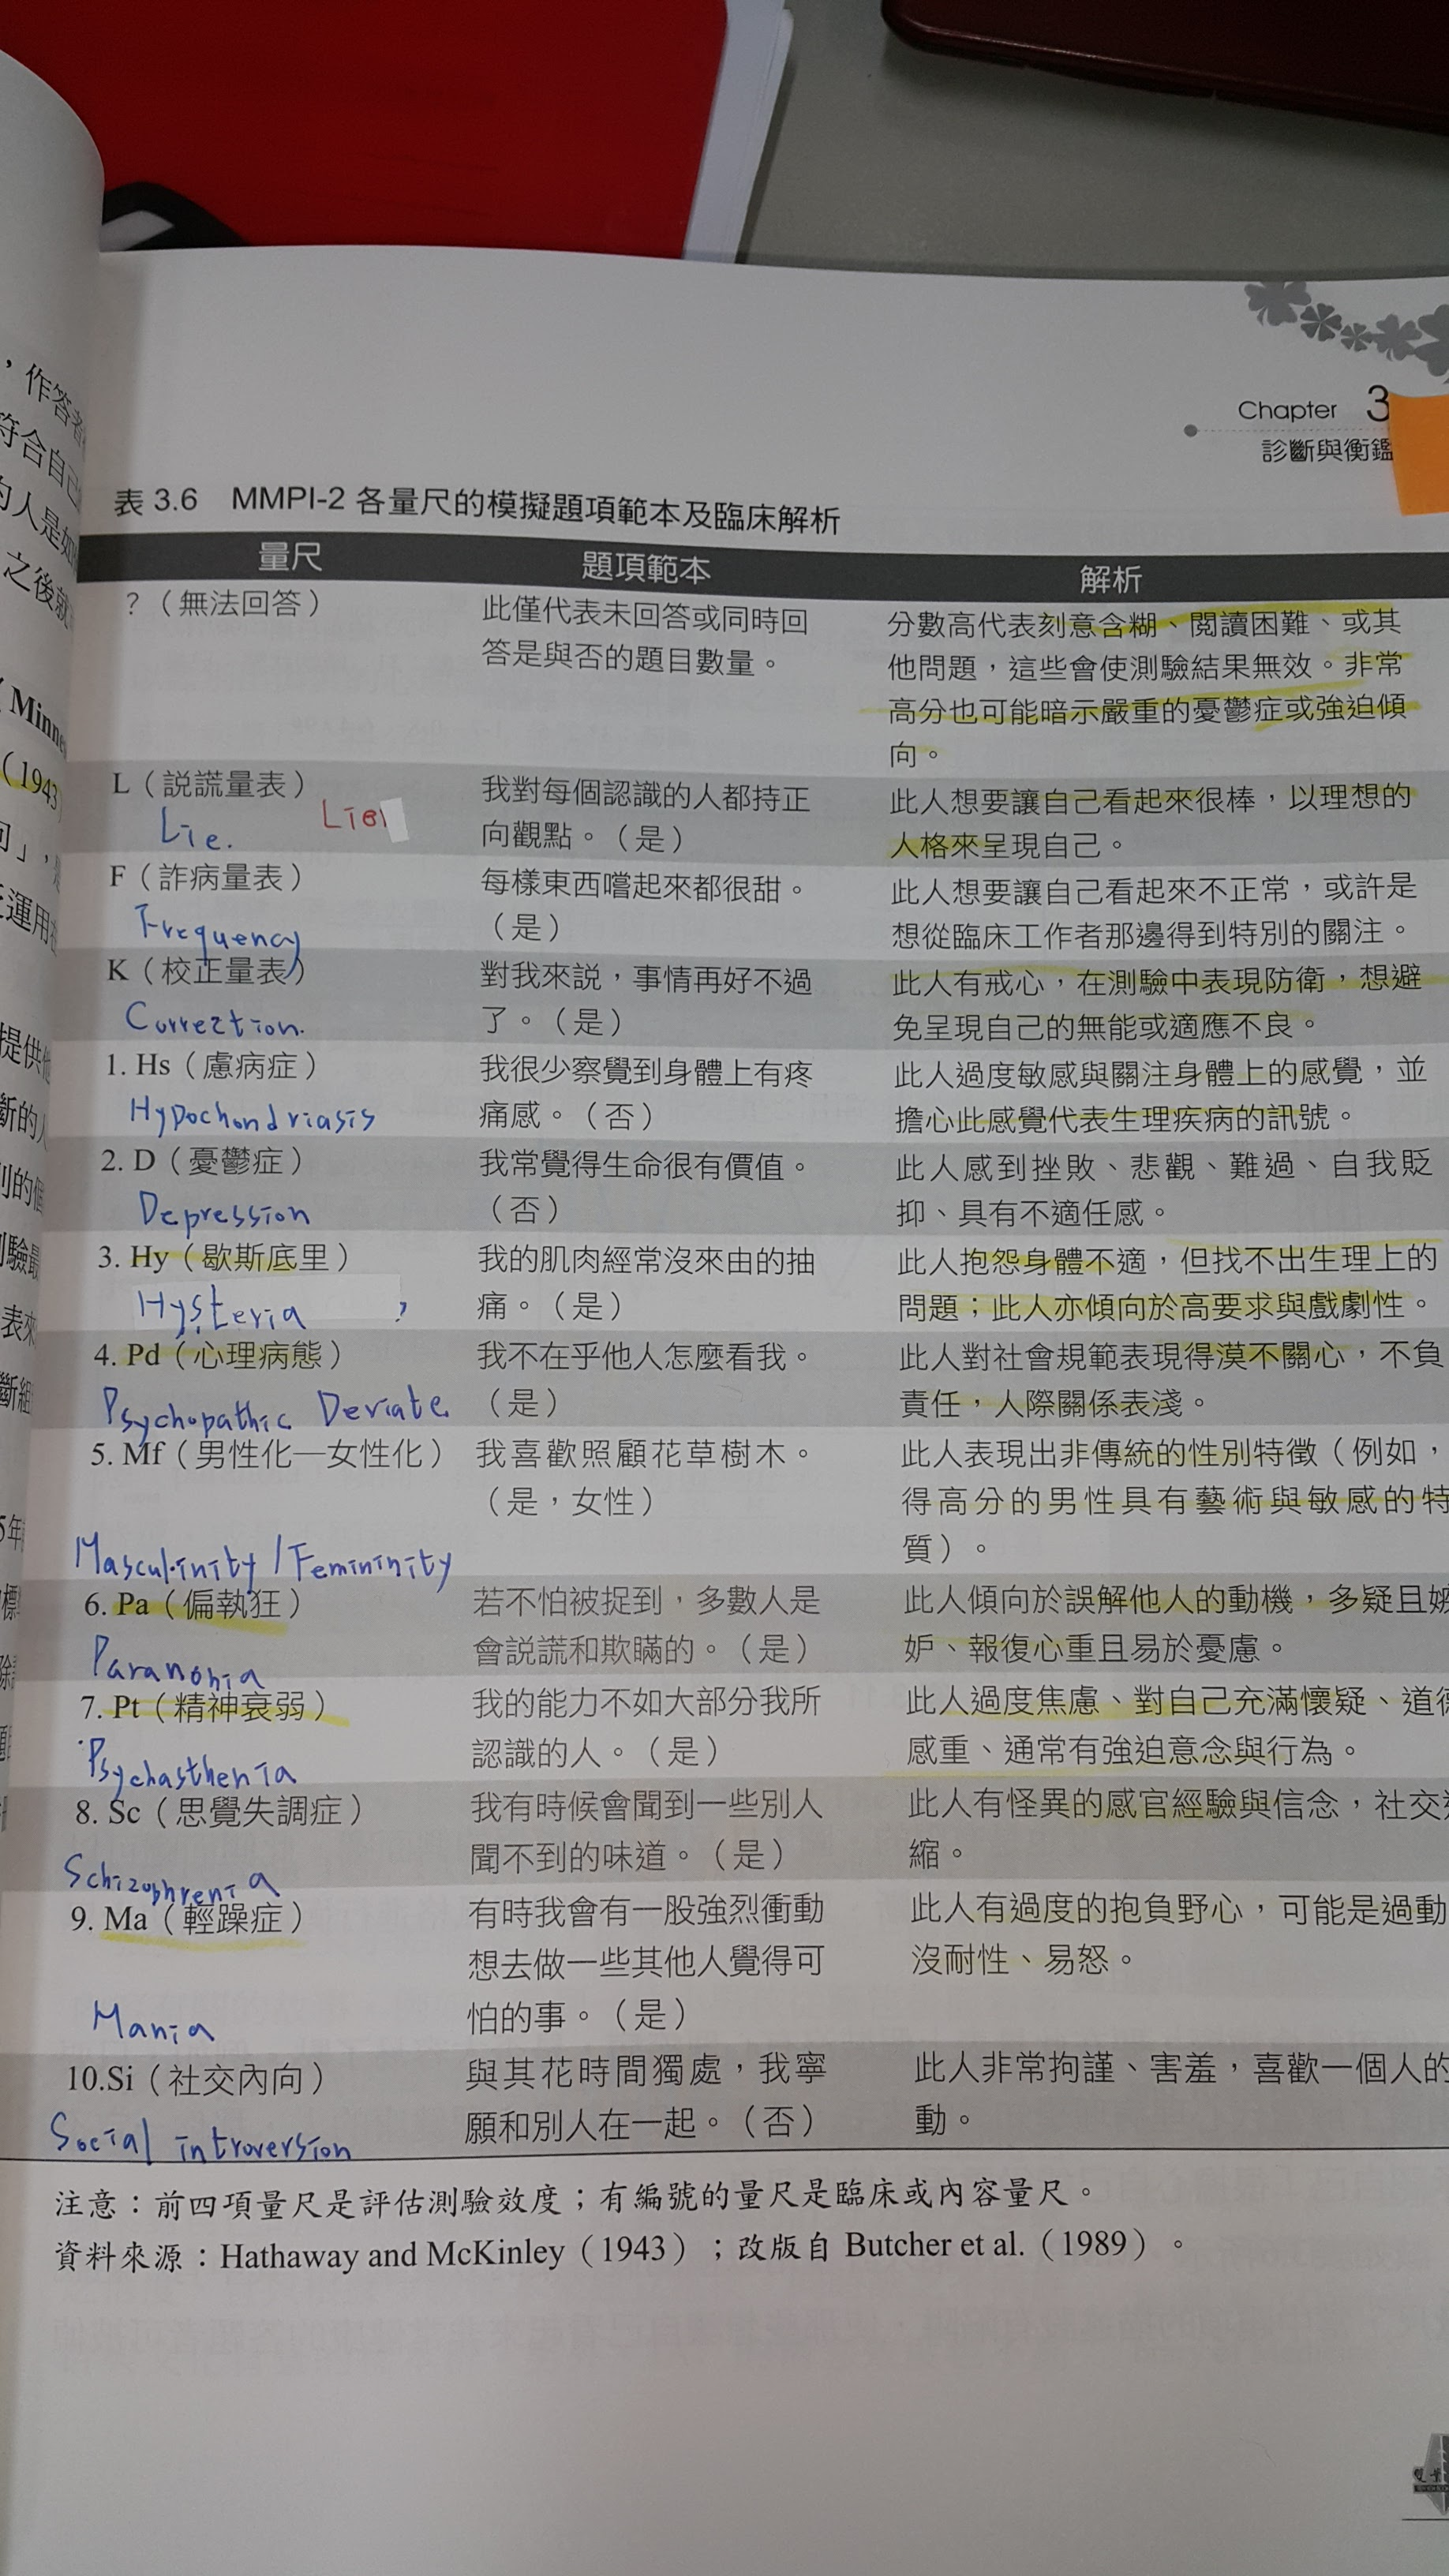 ，作答者
符合自己
的人是如
之後就
Minne
（1943）
Chapter 3
診斷與衡鑑
表 3.6 MMPI-2 各量尺的模擬題項範本及臨床解析
量尺 題項範本 解析
？（無法回答） 此僅代表未回答或同時回 分數高代表刻意含糊、閱讀困難、或其
答是與否的題目數量。 他問題，這些會使測驗結果無效。非常
高分也可能暗示嚴重的憂鬱症或強迫傾
向。
L（說謊量表） 我對每個認識的人都持正 此人想要讓自己看起來很棒，以理想的
Lie. Lie 向觀點。（是） 人格來呈現自己。
F（詐病量表） 每樣東西嚐起來都很甜。 此人想要讓自己看起來不正常，或許是
Frequency （是） 想從臨床工作者那邊得到特別的關注。
K（校正量表） 對我來說，事情再好不過 此人有戒心，在測驗中表現防衛，想避
Correction. 了。（是） 免呈現自己的無能或適應不良。
1. Hs（慮病症） 我很少察覺到身體上有疼 此人過度敏感與關注身體上的感覺，並
Hypochondriasis 痛感。（否） 擔心此感覺代表生理疾病的訊號。
2. D（憂鬱症） 我常覺得生命很有價值。 此人感到挫敗、悲觀、難過、自我貶
Depression （否） 抑、具有不適任感。
3. Hy（歇斯底里） 我的肌肉經常沒來由的抽 此人抱怨身體不適，但找不出生理上的
Hysteria 痛。（是） 問題；此人亦傾向於高要求與戲劇性。
4. Pd（心理病態） 我不在乎他人怎麼看我。 此人對社會規範表現得漠不關心，不負
Psychopathic Deviate. （是） 責任，人際關係表淺。
5. Mf（男性化—女性化） 我喜歡照顧花草樹木。 此人表現出非傳統的性別特徵（例如，
（是，女性） 得高分的男性具有藝術與敏感的特
質）。
Masculinity / Femininity
6. Pa（偏執狂） 若不怕被捉到，多數人是 此人傾向於誤解他人的動機，多疑且嫉
Paranonia 會說謊和欺瞞的。（是） 妒、報復心重且易於憂慮。
7. Pt（精神衰弱） 我的能力不如大部分我所 此人過度焦慮、對自己充滿懷疑、道德
Psychasthenia 認識的人。（是） 感重、通常有強迫意念與行為。
8. Sc（思覺失調症） 我有時候會聞到一些別人 此人有怪異的感官經驗與信念，社交
Schizophrenia 聞不到的味道。（是） 縮。
9. Ma（輕躁症） 有時我會有一股強烈衝動 此人有過度的抱負野心，可能是過動
想去做一些其他人覺得可 沒耐性、易怒。
Mania 怕的事。（是）
10.Si（社交內向） 與其花時間獨處，我寧 此人非常拘謹、害羞，喜歡一個人的
Social introversion 願和別人在一起。（否） 動。
注意：前四項量尺是評估測驗效度；有編號的量尺是臨床或內容量尺。
資料來源：Hathaway and McKinley（1943）；改版自 Butcher et al.（1989）。